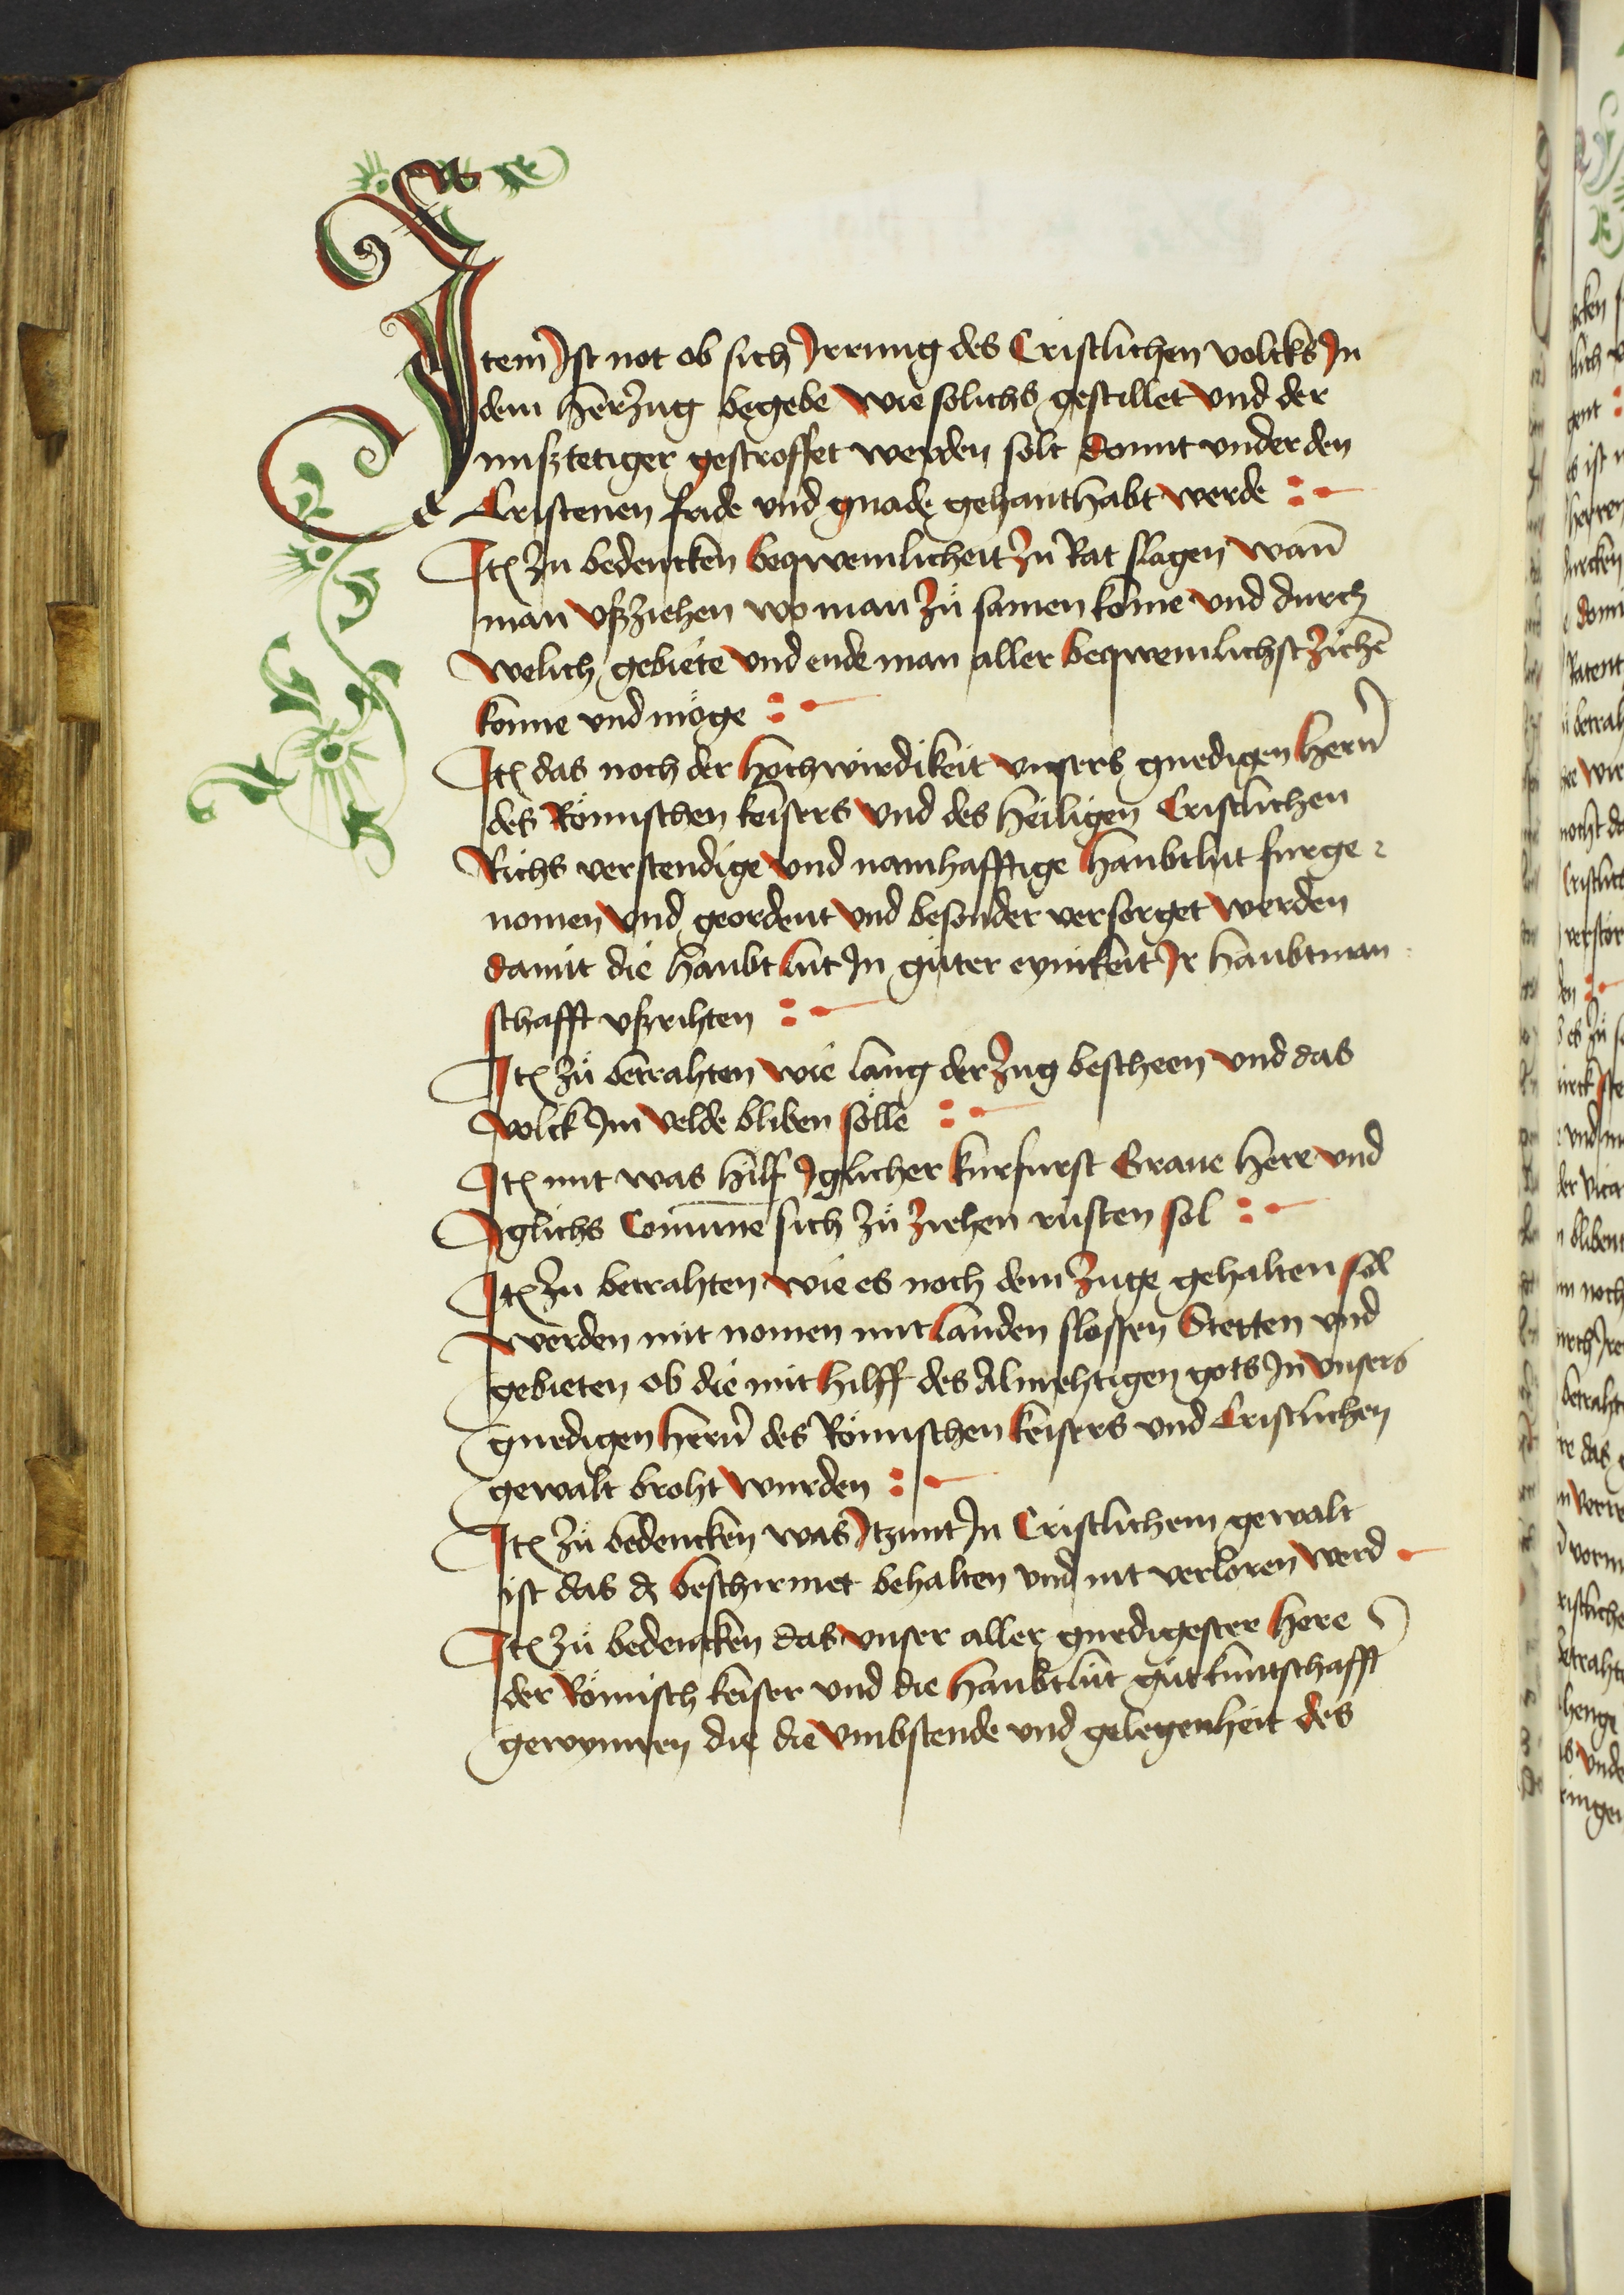 Item Ist not ob sich Irrung des Cristlichen volcks In
dem herzug begebe wie solichs gestillet vnd der
mißtetiger gestroffet werden solt Domit vnder den
Cristenen fride vnd gnade gehanthabt werde
Itē zu bedencken beqwemlicheit zu Rat slagen wan̄
man vßziehen wo man zů samen kōme vnd durch
welich gebiete vnd ende man aller beqwemlichst ziehē
konne vnd möge
Itē das noch der hochwirdikeit vnsers gnedigen hern̄
des Römischen keisers vnd des heiligen Cristlichen
Richs verstendige vnd namhafftige haubtlut furge
nomen vnd geordent vnd besonder versorget werden
damit die haubtlut In guter eynikeit Ir haubtman
schafft vßrihten
Itē zů betrahten wie lang der zug bescheen vnd das
volck Im velde bliben sölle
Itē mit was hilf Iglicher kurfurst Graue here vnd
Iglichs Com̄une sich zů ziehen rusten sol
Itē zu betrahten wie es noch dem zuge gehalten sol
werden mit nomen mit landen slossen Stetten vnd
gebieten ob die mit hilff des Almehtigen gots In vnsers
gnedigen hern̄ des Römischen keisers vnd Cristlichen
gewalt broht wurden
Itē zů bedencken was Itzunt In Cristlichem gewalt
ist das dz beschirmet behalten vnd nit verloren werd
Itē zů bedencken das vnser aller gnedigester here
der Römisch keiser vnd die haubtlut gut kuntschafft
gewynnen die die vmbstende vnd gelegenheit des